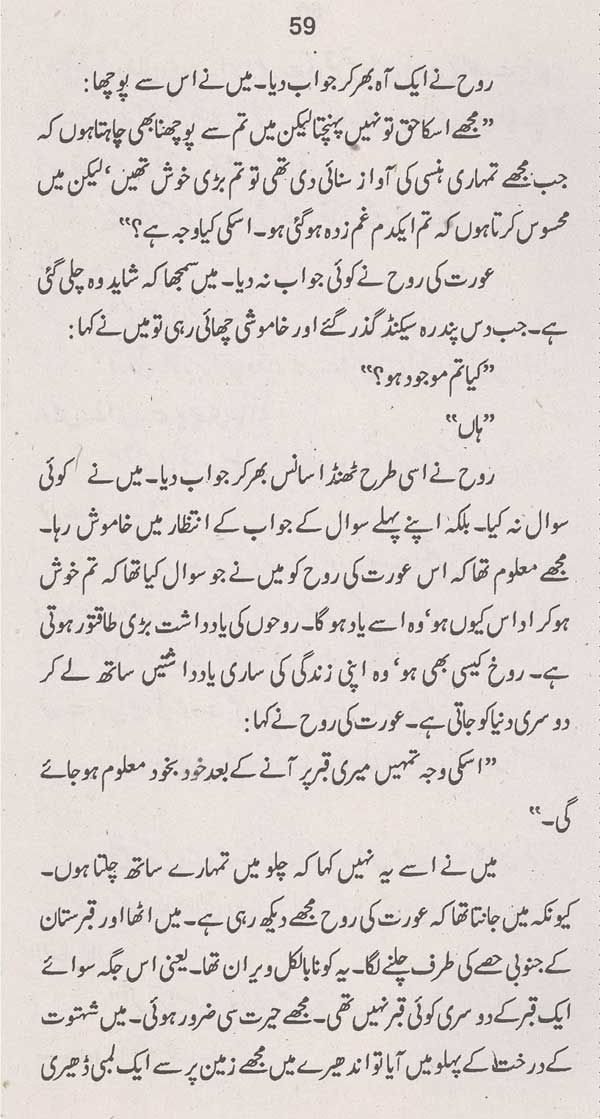 59
روح نے ایک آہ بھر کر جواب دیا۔ میں نے اس سے پوچھا:
”مجھے اسکا حق تو نہیں پہنچتا لیکن میں تم سے پوچھنا بھی چاہتا ہوں کہ
جب مجھے تمہاری ہنسی کی آواز سنائی دی تھی تو تم بڑی خوش تھیں‘ لیکن میں
محسوس کرتا ہوں کہ تم ایکدم غم زدہ ہو گئی ہو۔ اسکی کیا وجہ ہے؟“
عورت کی روح نے کوئی جواب نہ دیا۔ میں سمجھا کہ شاید وہ چلی گئی
ہے۔ جب دس پندرہ سیکنڈ گذر گئے اور خاموشی چھائی رہی تو میں نے کہا:
”کیا تم موجود ہو؟“
”ہاں“
روح نے اسی طرح ٹھنڈا سانس بھر کر جواب دیا۔ میں نے کوئی
سوال نہ کیا۔ بلکہ اپنے پہلے سوال کے جواب کے انتظار میں خاموش رہا۔
مجھے معلوم تھا کہ اس عورت کی روح کو میں نے جو سوال کیا تھا کہ تم خوش
ہو کر اداس کیوں ہو‘ وہ اسے یاد ہو گا۔ روحوں کی یادداشت بڑی طاقتور ہوتی
ہے۔ روخ کیسی بھی ہو‘ وہ اپنی زندگی کی ساری یادداشتیں ساتھ لے کر
دوسری دنیا کو جاتی ہے۔ عورت کی روح نے کہا:
”اسکی وجہ تمہیں میری قبر پر آنے کے بعد خود بخود معلوم ہو جائے
گی۔“
میں نے اسے یہ نہیں کہا کہ چلو میں تمہارے ساتھ چلتا ہوں۔
کیونکہ میں جانتا تھا کہ عورت کی روح مجھے دیکھ رہی ہے۔ میں اٹھا اور قبرستان
کے جنوبی حصے کی طرف چلنے لگا۔ یہ کونا بالکل ویران تھا۔ یعنی اس جگہ سوائے
ایک قبر کے دوسری کوئی قبر نہیں تھی۔ مجھے حیرت سی ضرور ہوئی۔ میں شہتوت
کے درخت کے پہلو میں آیا تو اندھیرے میں مجھے زمین پر سے ایک لمبی ڈھیری